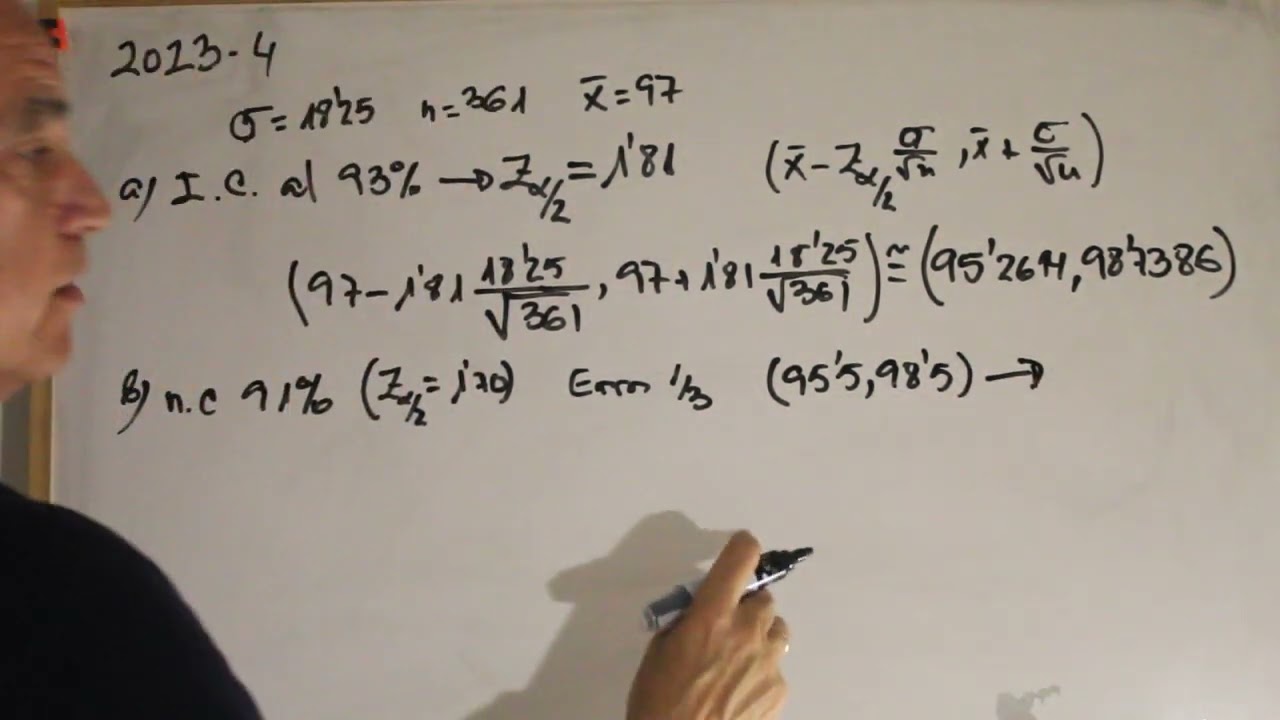 2023-4
σ = 18'25 n = 361 x̄ = 97
a) I.C. al 93% → Z α/2 = 1'81 (x̄ - Z α/2 σ/√n , x̄ + σ/√n)
(97 - 1'81 18'25/√361 , 97 + 1'81 18'25/√361) ≅ (95'2614, 98'7386)
b) n.c 91% (Z α/2 = 1'70) Error 1/3 (95'5, 98'5) →